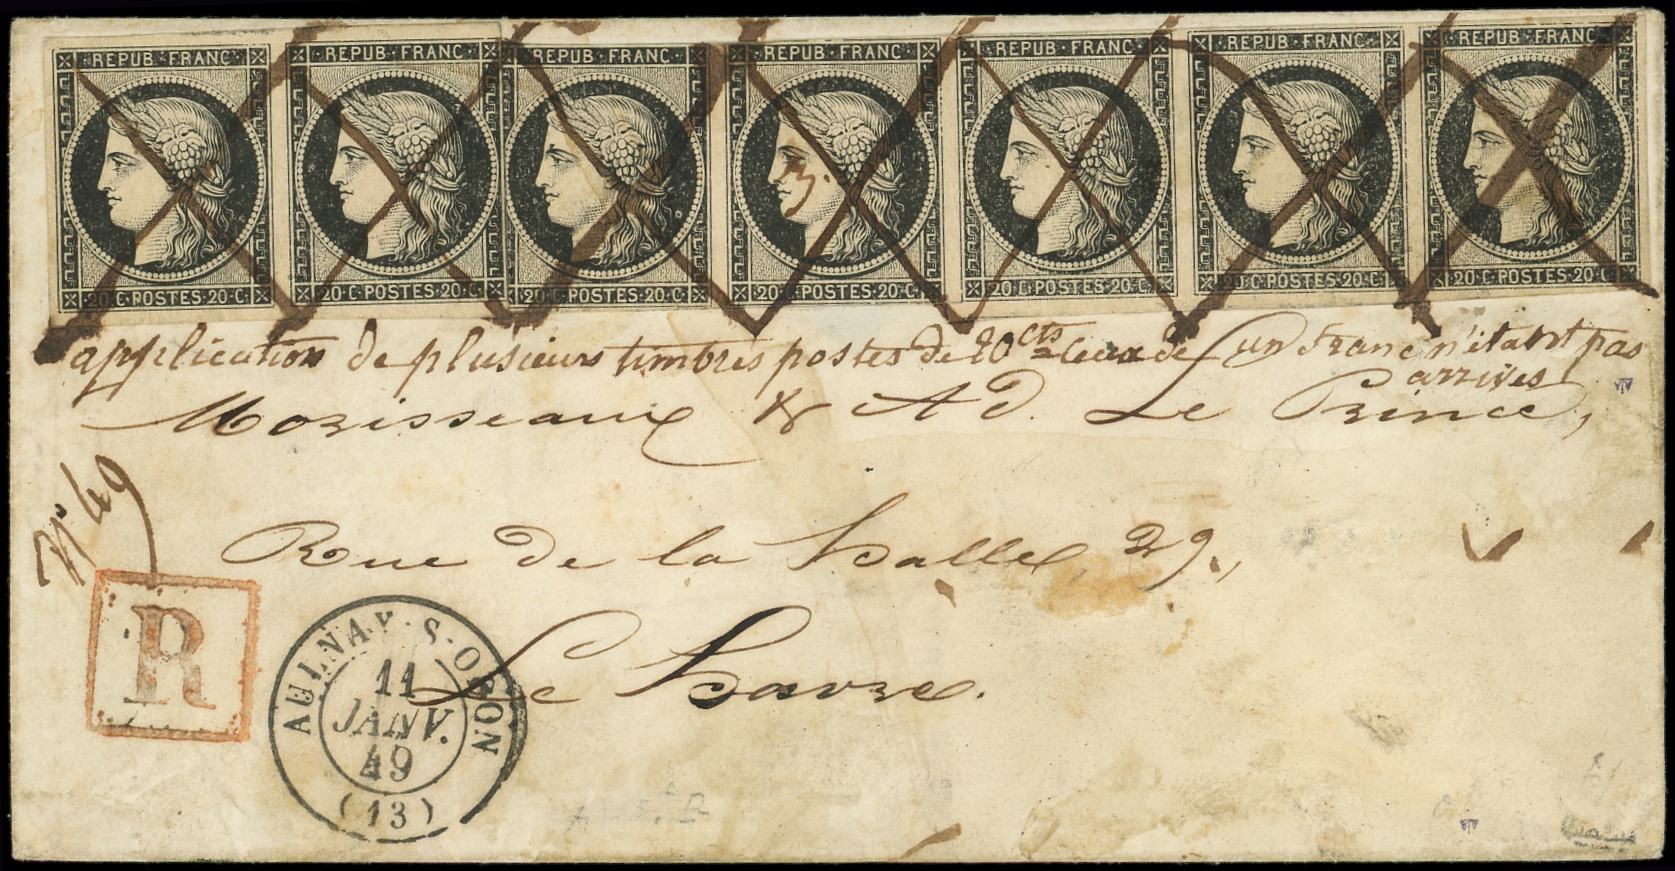 REPUB·FRANC REPUB·FRANC REPUB·FRANC REPUB·FRANC REPUB·FRANC REPUB·FRANC REPUB·FRANC
20·C·POSTES·20·C· 20·C·POSTES·20·C· 20·C·POSTES·20·C· 20·C·POSTES·20·C· 20·C·POSTES·20·C· 20·C·POSTES·20·C· 20·C·POSTES·20·C·
application de plusieurs timbres postes de 20 cts ceux de un franc n'étant pas
arrivés
Morisseaux & Ad. Le Prince,
N° 49
Rue de la halle, 29,
Le havre.
R
AULNAY·S·ODON
11
JANV.
49
(13)